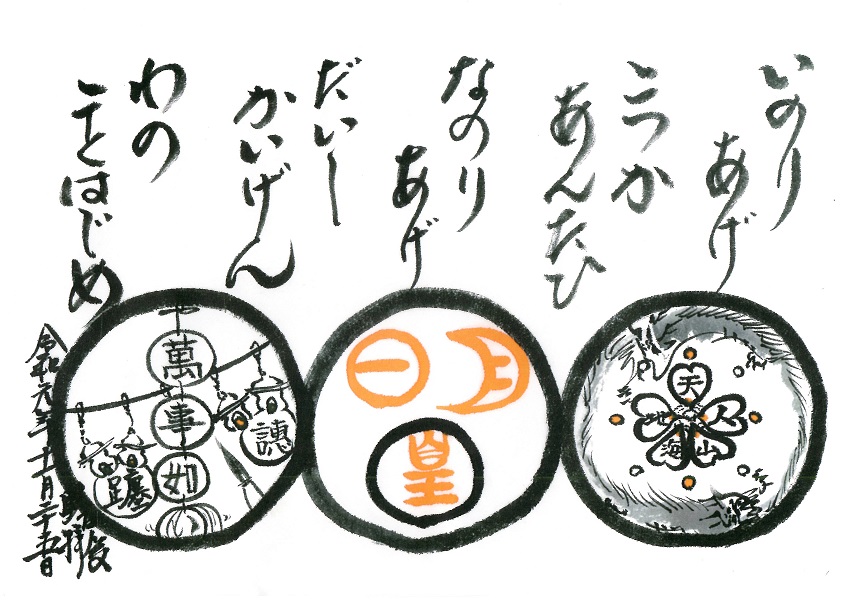 いのり
あげ
こつか
あんたひ
なのり
あげ
だいー
かいげん
わの
ことはじめ
天
人
山
海
地
月
日
皇
萬
事
如
令和元年十一月二十五日